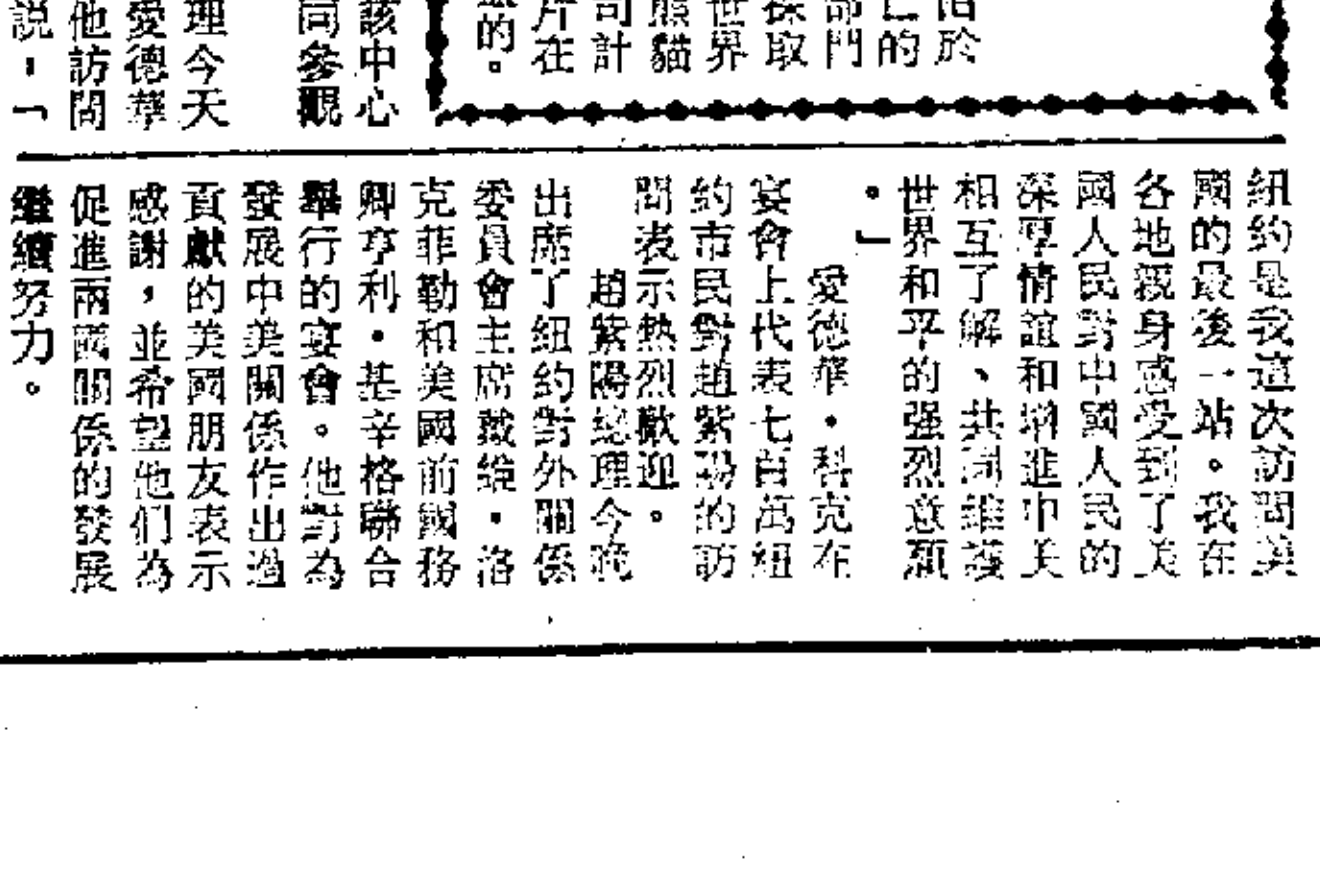 由於
亡的
部門
採取
世界
熊貓
司計
片在
的。
該中心
同參觀
理今天
愛德華
他訪問
説，「
紐約是我這次訪問美
國的最後一站。我在
各地親身感受到了美
國人民對中國人民的
深厚情誼和增進中美
相互了解、共同維護
世界和平的强烈意願
。」
愛德華·科克在
宴會上代表七百萬紐
約市民對趙紫陽的訪
問表示熱烈歡迎。
趙紫陽總理今晚
出席了紐約對外關係
委員會主席戴維·洛
克菲勒和美國前國務
卿亨利·基辛格聯合
舉行的宴會。他對為
發展中美關係作出過
貢獻的美國朋友表示
感謝，並希望他們為
促進兩國關係的發展
繼續努力。